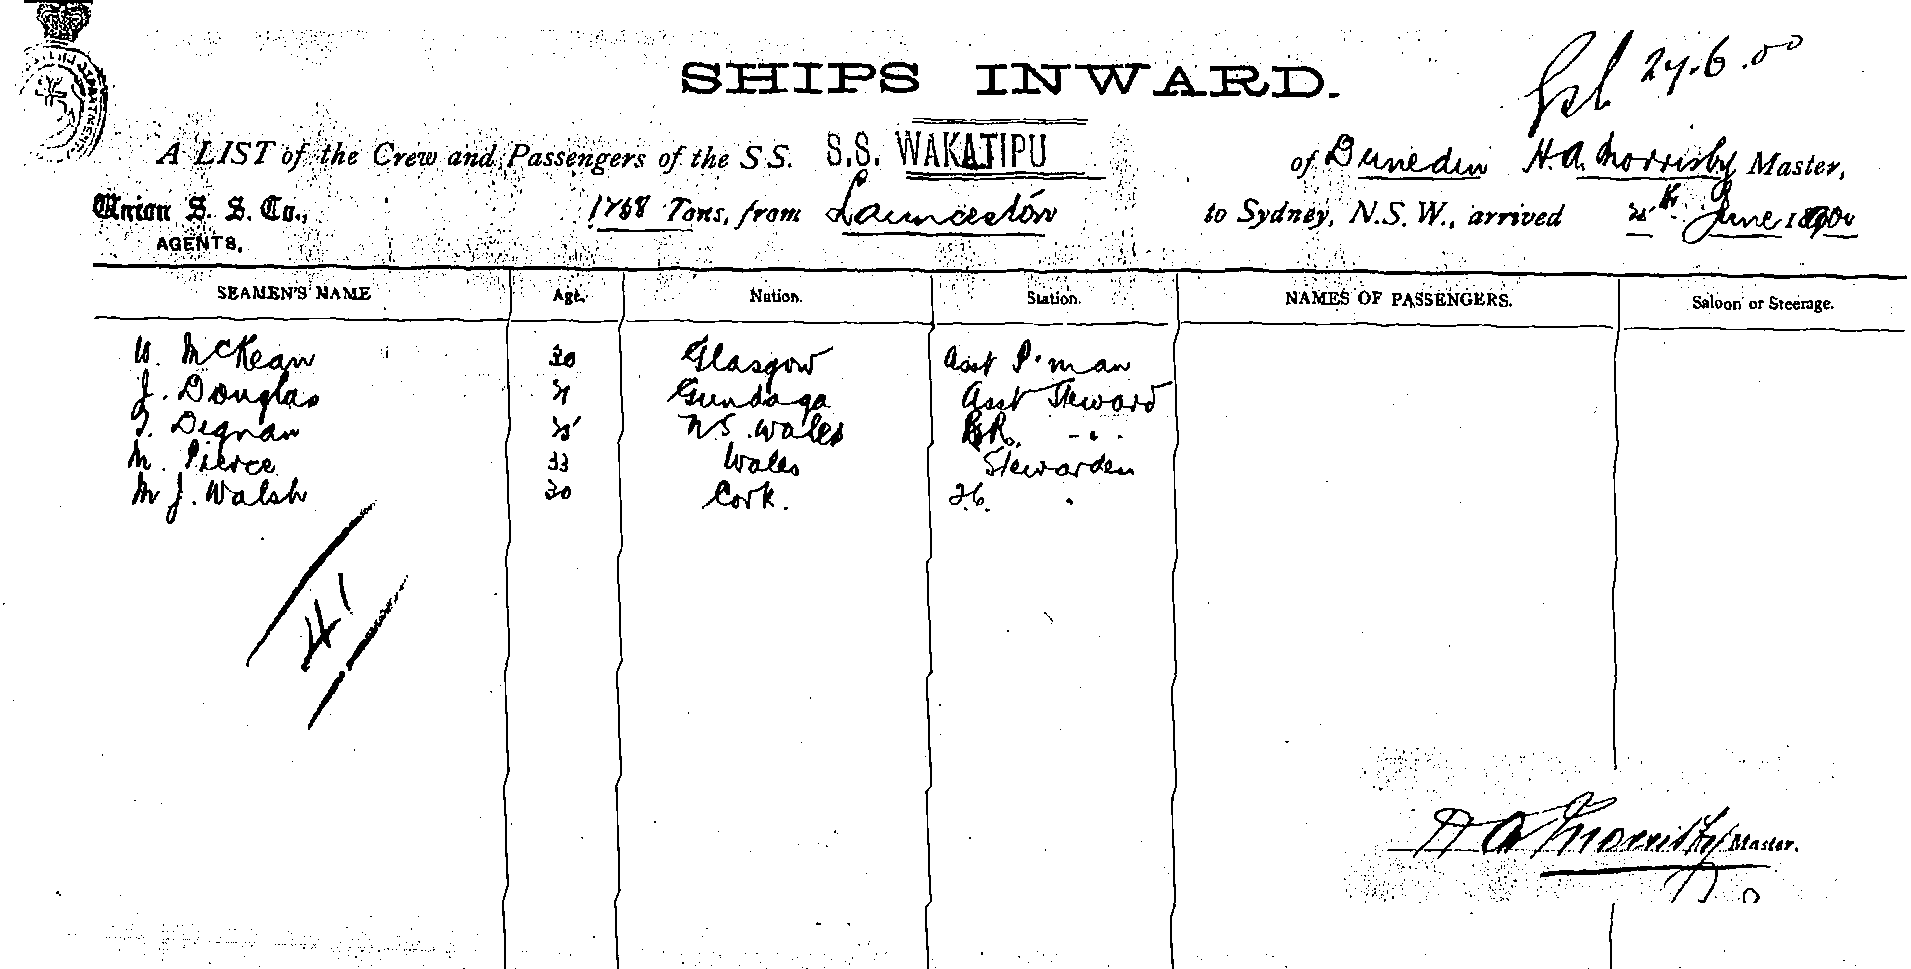 Gsl 27.6.00
SHIPS INWARD.
A LIST of the Crew and Passengers of the S S. S.S. WAKATIPU of Dunedin H. A. Morrisby Master,
Union S. S. Co., 1758 Tons, from Launceston to Sydney, N.S.W., arrived 25th June 1900
AGENTS,
SEAMEN'S NAME Age. Nation. Station. NAMES OF PASSENGERS. Saloon or Steerage.
W. McKean 30 Glasgow Asst P. man
J. Douglas 21 Gundaga Asst Steward
Dignan 25 N S. Wales
M. Pierce 33 Wales Stewarden
M J. Walsh 30 Cork. 2.C. "
41
H A Morrisby Master.